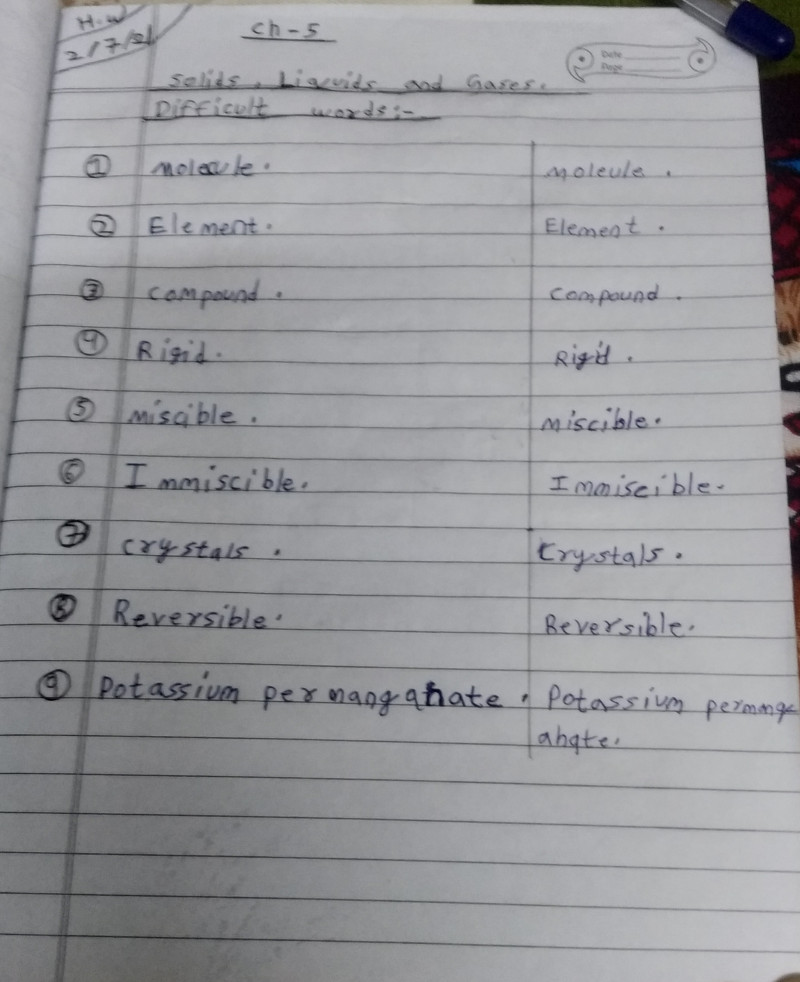 H.W
2/7/21
Ch-5
Date
Page
Solids, Liquids and Gases.
Difficult words:-
① Molecule. Moleule.
② Element. Element.
③ Compound. Compound.
④ Rigid. Rigid.
⑤ Miscible. Miscible.
⑥ Immiscible. Immiscible.
⑦ Crystals. Crystals.
⑧ Reversible. Reversible.
⑨ Potassium permanganate. Potassium permange
anate.